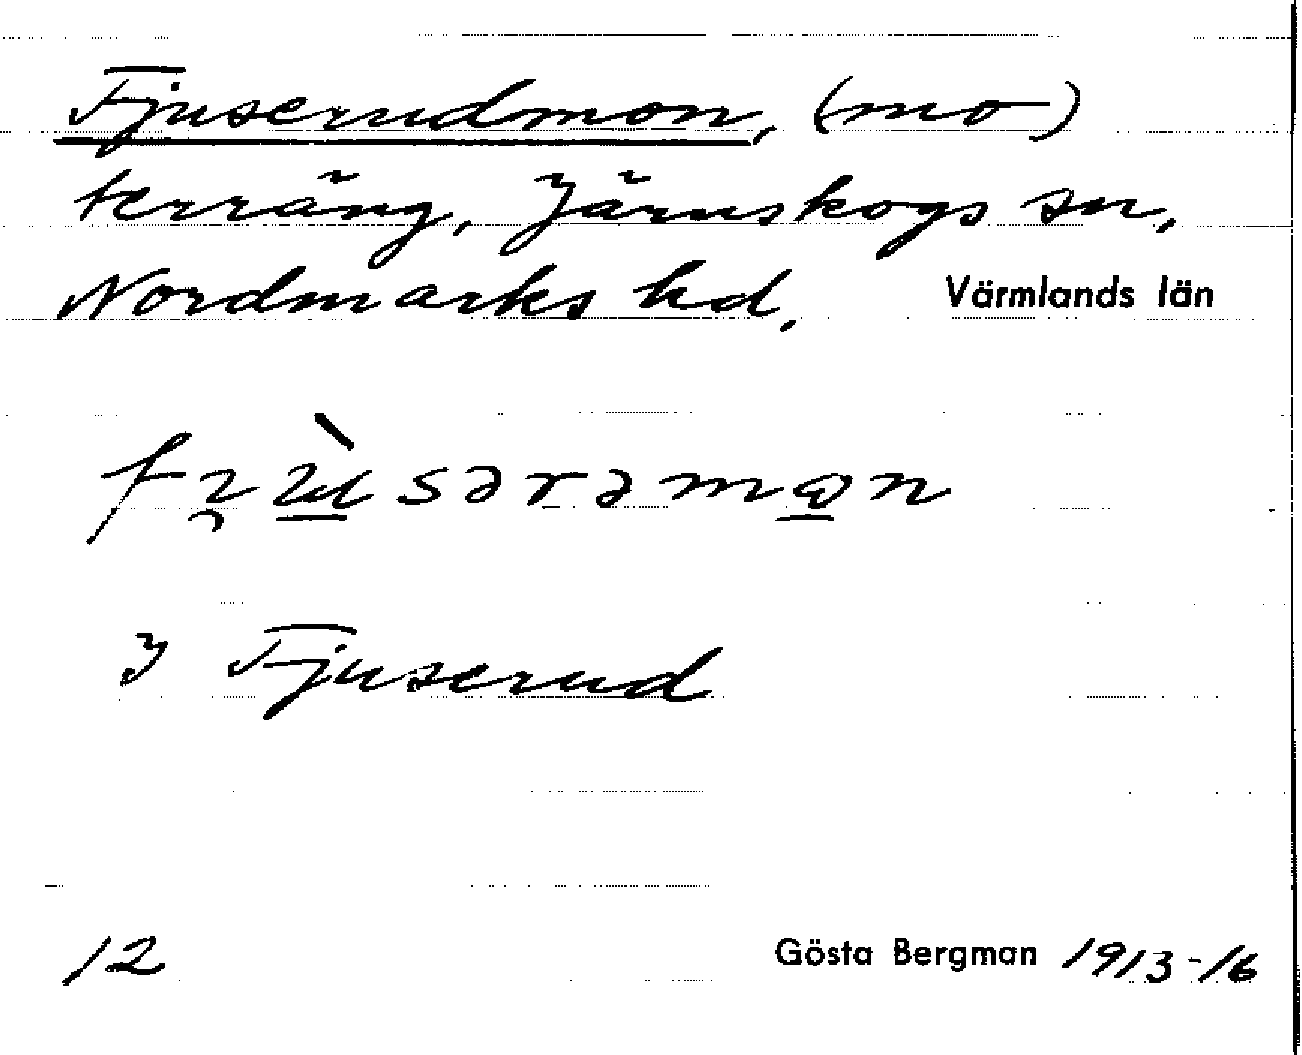 Fjuserudmon, (mo)
terräng, Järnskogs sn,
Nordmarks hd. Värmlands län
I Fjuserud
12 Gösta Bergman 1913-16